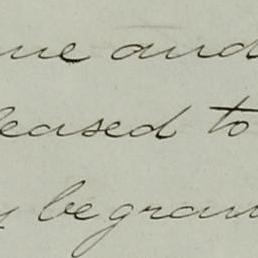 me and
leased to
y be gran